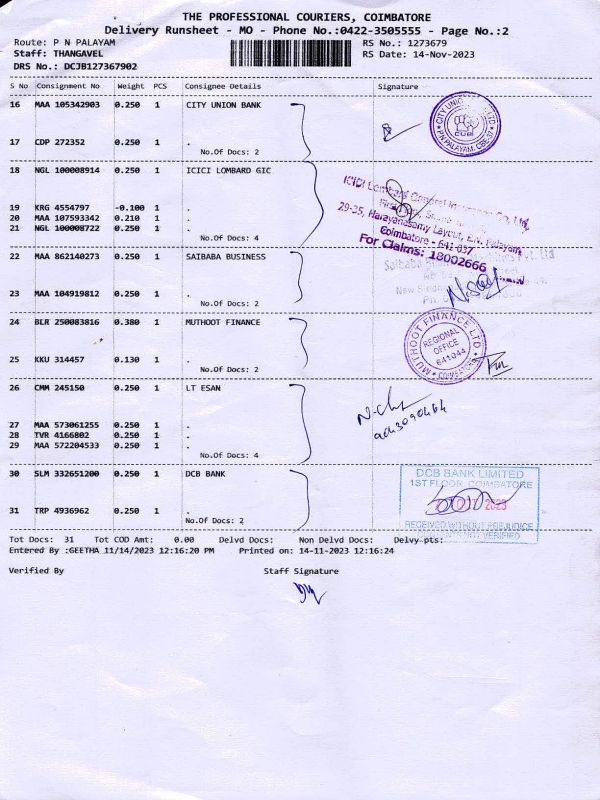 THE PROFESSIONAL COURIERS, COIMBATORE
Delivery Runsheet - MO - Phone No.:0422-3505555 - Page No.:2
Route: P N PALAYAM RS No.: 1273679
Staff: THANGAVEL RS Date: 14-Nov-2023
DRS No.: DCJB127367902
S No Consignment No Weight PCS Consignee Details Signature
16 MAA 105342903 0.250 1 CITY UNION BANK
17 CDP 272352 0.250 1 .
No.Of Docs: 2
18 NGL 100008914 0.250 1 ICICI LOMBARD GIC
19 KRG 4554797 -0.100 1 .
20 MAA 107593342 0.210 1 .
21 NGL 100008722 0.250 1 .
No.Of Docs: 4
ICICI Lombard General Insurance Co. Ltd.
29-35, Narayanasamy Layout, P.N. Palayam,
Coimbatore - 641 037
For Claims: 18002666
22 MAA 862140273 0.250 1 SAIBABA BUSINESS
23 MAA 104919812 0.250 1 .
No.Of Docs: 2
Saibaba
24 BLR 250083816 0.380 1 MUTHOOT FINANCE
25 KKU 314457 0.130 1 .
No.Of Docs: 2
MUTHOOT FINANCE LTD
REGIONAL
OFFICE
641044
COIMBATORE
26 CMM 245150 0.250 1 LT ESAN
27 MAA 573061255 0.250 1 .
28 TVR 4166802 0.250 1 .
29 MAA 572204533 0.250 1 .
No.Of Docs: 4
30 SLM 332651200 0.250 1 DCB BANK
31 TRP 4936962 0.250 1 .
No.Of Docs: 2
DCB BANK LIMITED
1ST FLOOR, COIMBATORE
2023
RECEIVED WITHOUT PREJUDICE
NOT VERIFIED
Tot Docs: 31 Tot COD Amt: 0.00 Delvd Docs: Non Delvd Docs: Delvy-pts:
Entered By :GEETHA 11/14/2023 12:16:20 PM Printed on: 14-11-2023 12:16:24
Verified By Staff Signature